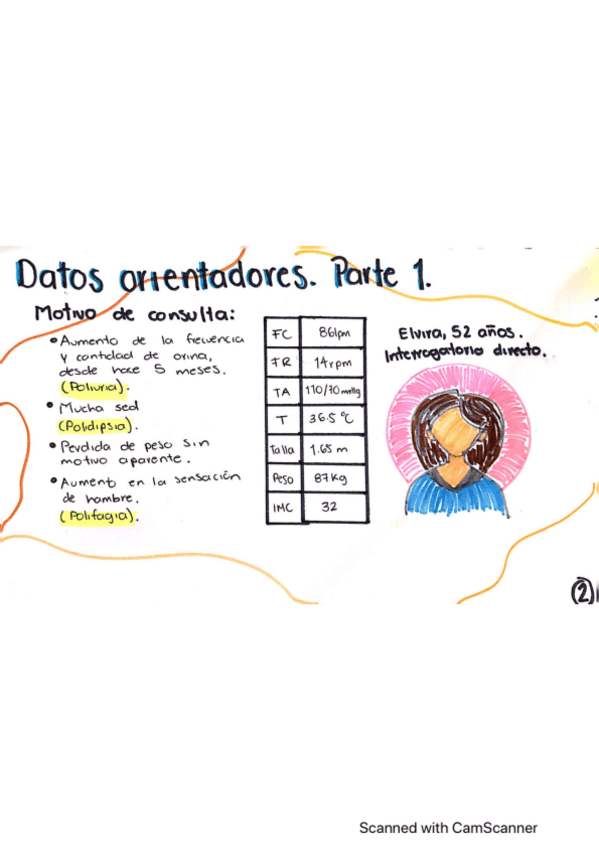 Datos orientadores. Parte 1.
Motivo de consulta:
• Aumento de la frecuencia
y cantidad de orina,
desde hace 5 meses.
(Poliuria).
• Mucha sed
(Polidipsia).
• Perdida de peso sin
motivo aparente.
• Aument en la sensación
de hambre.
(Polifagia).
FC 86lpm
FR 14rpm
TA 110/70 mmHg
T 36.5 °C
Talla 1.65 m
Peso 87Kg
IMC 32
Elvira, 52 años.
Interrogatorio directo.
(2)
Scanned with CamScanner